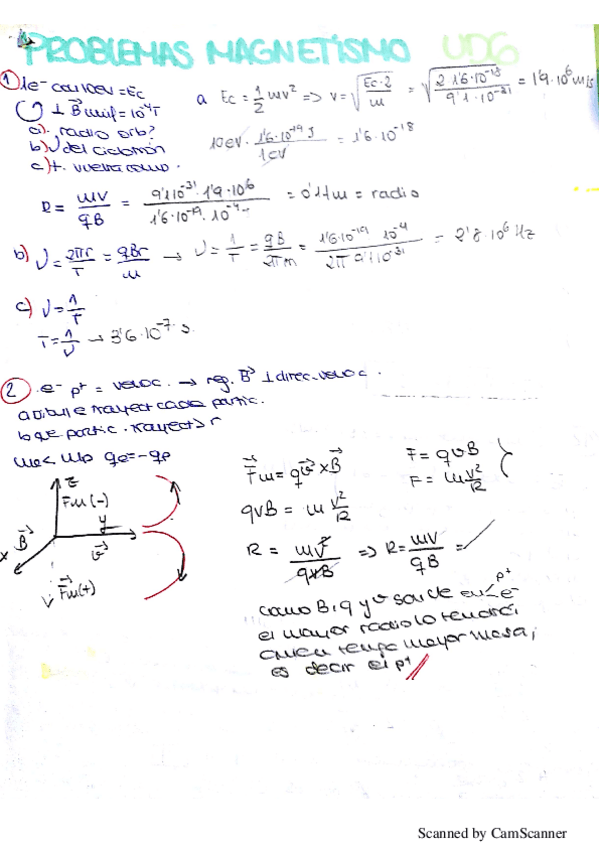 PROBLEMAS MAGNETISMO UD6
1) 1e⁻ con 10eV = Ec
⊥ B⃗ unif = 10⁻⁴T
a) radio orb?
b) ν del ciclotrón
c) t. vuelta
a Ec = 1/2 mv² => v = √(Ec·2/m) = √(2 1'6·10⁻¹⁸ / 9'1·10⁻³¹) = 1'9·10⁶ m/s
10eV · 1'6·10⁻¹⁹ J / 1eV = 1'6·10⁻¹⁸
R = mv/qB = 9'1·10⁻³¹ · 1'9·10⁶ / 1'6·10⁻¹⁹ · 10⁻⁴ = 0'11m = radio
b) ν = 2πr/T = qBr/m → ν = 1/T = qB/2πm = 1'6·10⁻¹⁹ 10⁻⁴ / 2π 9'1·10⁻³¹ = 2'8·10⁶ Hz
c) ν = 1/T
T = 1/ν → 3'6·10⁻⁷ s.
2) e⁻ p⁺ = veloc. → reg. B⃗ ⊥ direc. veloc.
a dibuje trayect cada partic.
b que partic. trayect > r
me < mp qe = -qp
z
Fm(-)
y
B⃗
x
v⃗
F⃗m(+)
F⃗m = q v⃗ x B⃗
F = qvB
F = m v²/R
qvB = m v²/R
R = mv²/qvB => R = mv/qB =
como B, q y v son de e⁻ p⁺
el mayor radio lo tendrá
quien tenga mayor masa,
es decir el p⁺
Scanned by CamScanner